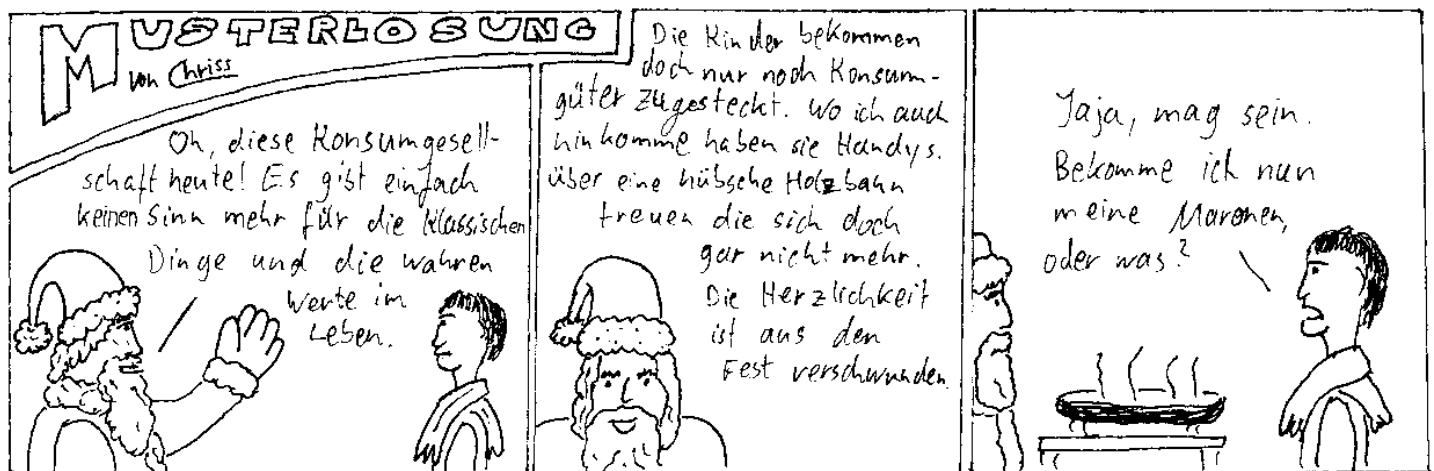 MUSTERLOSUNG
von Chriss
Oh, diese Konsumgesell-
schaft heute! Es gibt einfach
keinen Sinn mehr für die klassischen
Dinge und die wahren
Werte im
Leben.
Die Kinder bekommen
doch nur noch Konsum-
güter zugesteckt. Wo ich auch
hinkomme haben sie Handys.
Über eine hübsche Holzbahn
freuen die sich doch
gar nicht mehr.
Die Herzlichkeit
ist aus den
Fest verschwunden.
Jaja, mag sein.
Bekomme ich nun
meine Maronen,
oder was?